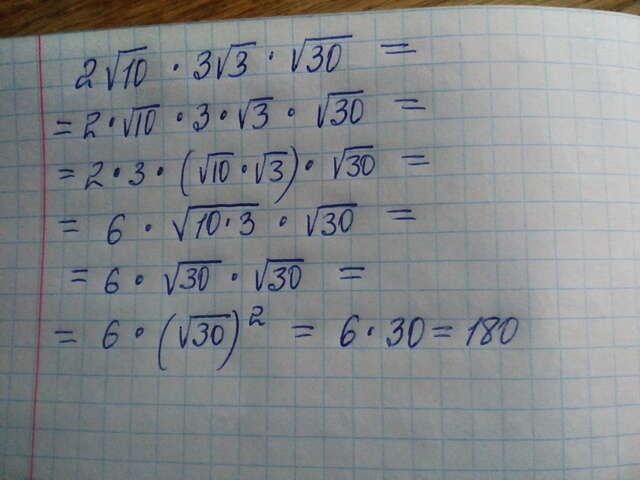 2√10 · 3√3 · √30 =
= 2 · √10 · 3 · √3 · √30 =
= 2 · 3 · (√10 · √3) · √30 =
= 6 · √(10·3) · √30 =
= 6 · √30 · √30 =
= 6 · (√30)² = 6 · 30 = 180